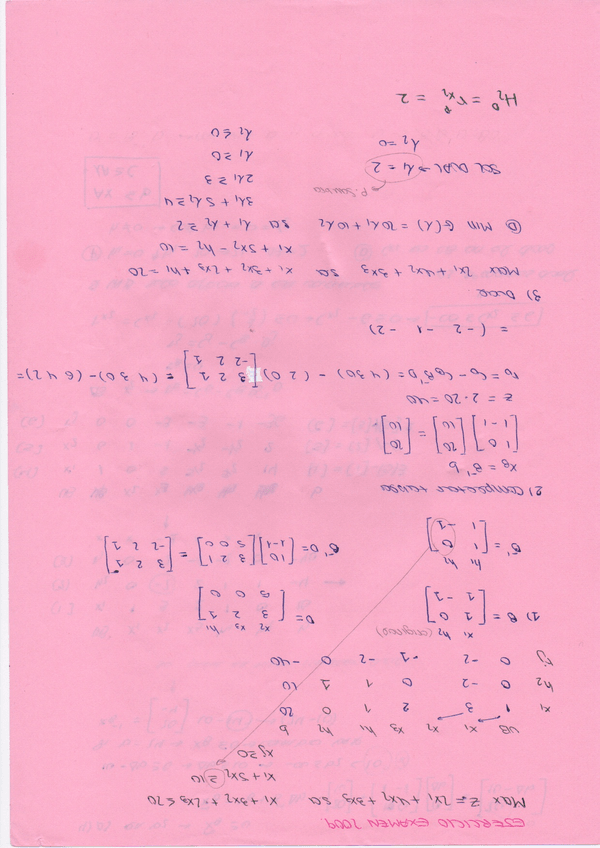 EJERCICIO EXAMEN 2009
Max Z = 2x1 + 4x2 + 3x3 sa x1 + 3x2 + 2x3 ≤ 20
x1 + 5x2 ≥ 10
xj ≥ 0
VB x1 x2 x3 h1 h2 b
x1 1 3 2 1 0 20
h2 0 -2 0 1 1 10
rj 0 -2 -1 -2 0 -40
x1 h2 (origen)
1) B = [1 0
1 -1]
D = x2 x3 h1
[3 2 1
5 0 0]
h1 h2
B⁻¹ = [1 0
1 -1]
B⁻¹D = [1 0
1 -1] [3 2 1
5 0 0] = [3 2 1
-2 2 1]
2) Completar tabla
xB = B⁻¹b
[1 0
1 -1] [20
10] = [20
10]
z = 2·20 = 40
rD = CD - CB B⁻¹D = (4 3 0) - (2 0) [3 2 1
-2 2 1] = (4 3 0) - (6 4 2) =
= (-2 -1 -2)
3) Dual
Max 2x1 + 4x2 + 3x3 sa x1 + 3x2 + 2x3 + h1 = 20
x1 + 5x2 - h2 = 10
(D) Min G(λ) = 20λ1 + 10λ2 sa λ1 + λ2 ≥ 2
3λ1 + 5λ2 ≥ 4
2λ1 ≥ 3
λ1 ≥ 0
λ2 ≤ 0
Sol Dual → λ1 = 2
λ2 = 0
H2 = rx2 = 2